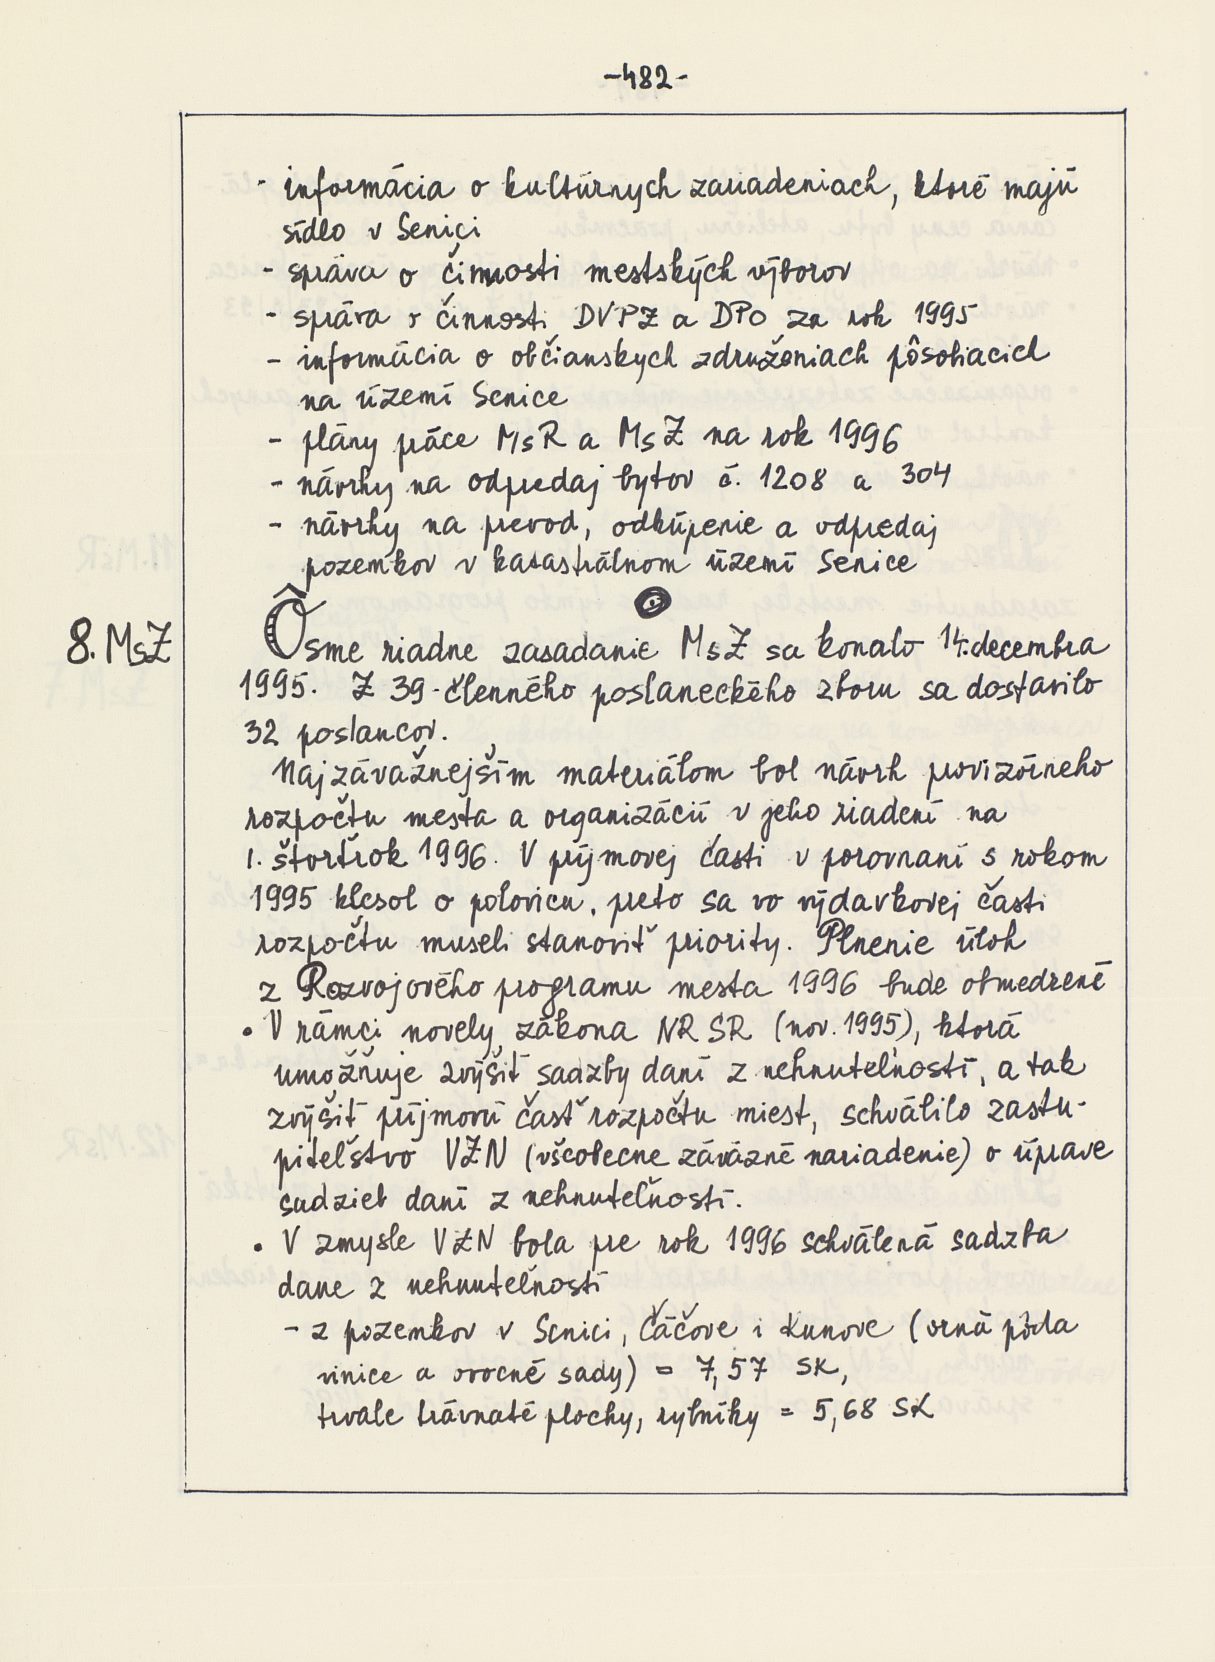 -482-
- informácia o kultúrnych zariadeniach, ktoré majú
sídlo v Senici
- správa o činnosti mestských výborov
- správa o činnosti DVPZ a DPO za rok 1995
- informácia o občianskych združeniach pôsobiacich
na území Senice
- plány práce MsR a MsZ na rok 1996
- návrhy na odpredaj bytov č. 1208 a 304
- návrhy na prevod, odkúpenie a odpredaj
pozemkov v katastrálnom území Senice
8. MsZ
Ôsme riadne zasadanie MsZ sa konalo 14. decembra
1995. Z 39-členného poslaneckého zboru sa dostavilo
32 poslancov.
Najzávažnejším materiálom bol návrh provizórneho
rozpočtu mesta a organizácií v jeho riadení na
1. štvrťrok 1996. V príjmovej časti v porovnaní s rokom
1995 klesol o polovicu, preto sa vo výdavkovej časti
rozpočtu museli stanoviť priority. Plnenie úloh
z Rozvojového programu mesta 1996 bude obmedzené
• V rámci novely zákona NR SR (nov. 1995), ktorá
umožňuje zvýšiť sadzby daní z nehnuteľností, a tak
zvýšiť príjmovú časť rozpočtu miest, schválilo zastu-
piteľstvo VZN (všeobecne záväzné nariadenie) o úprave
sadzieb daní z nehnuteľností.
• V zmysle VZN bola pre rok 1996 schválená sadzba
dane z nehnuteľností
- z pozemkov v Senici, Čáčove i Kunove (orná pôda
vinice a ovocné sady) = 7,57 SK,
trvale trávnaté plochy, rybníky = 5,68 SK